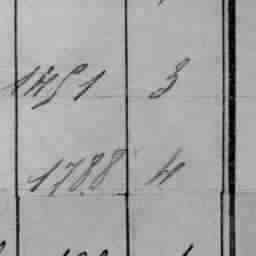 1451 3
1788 4